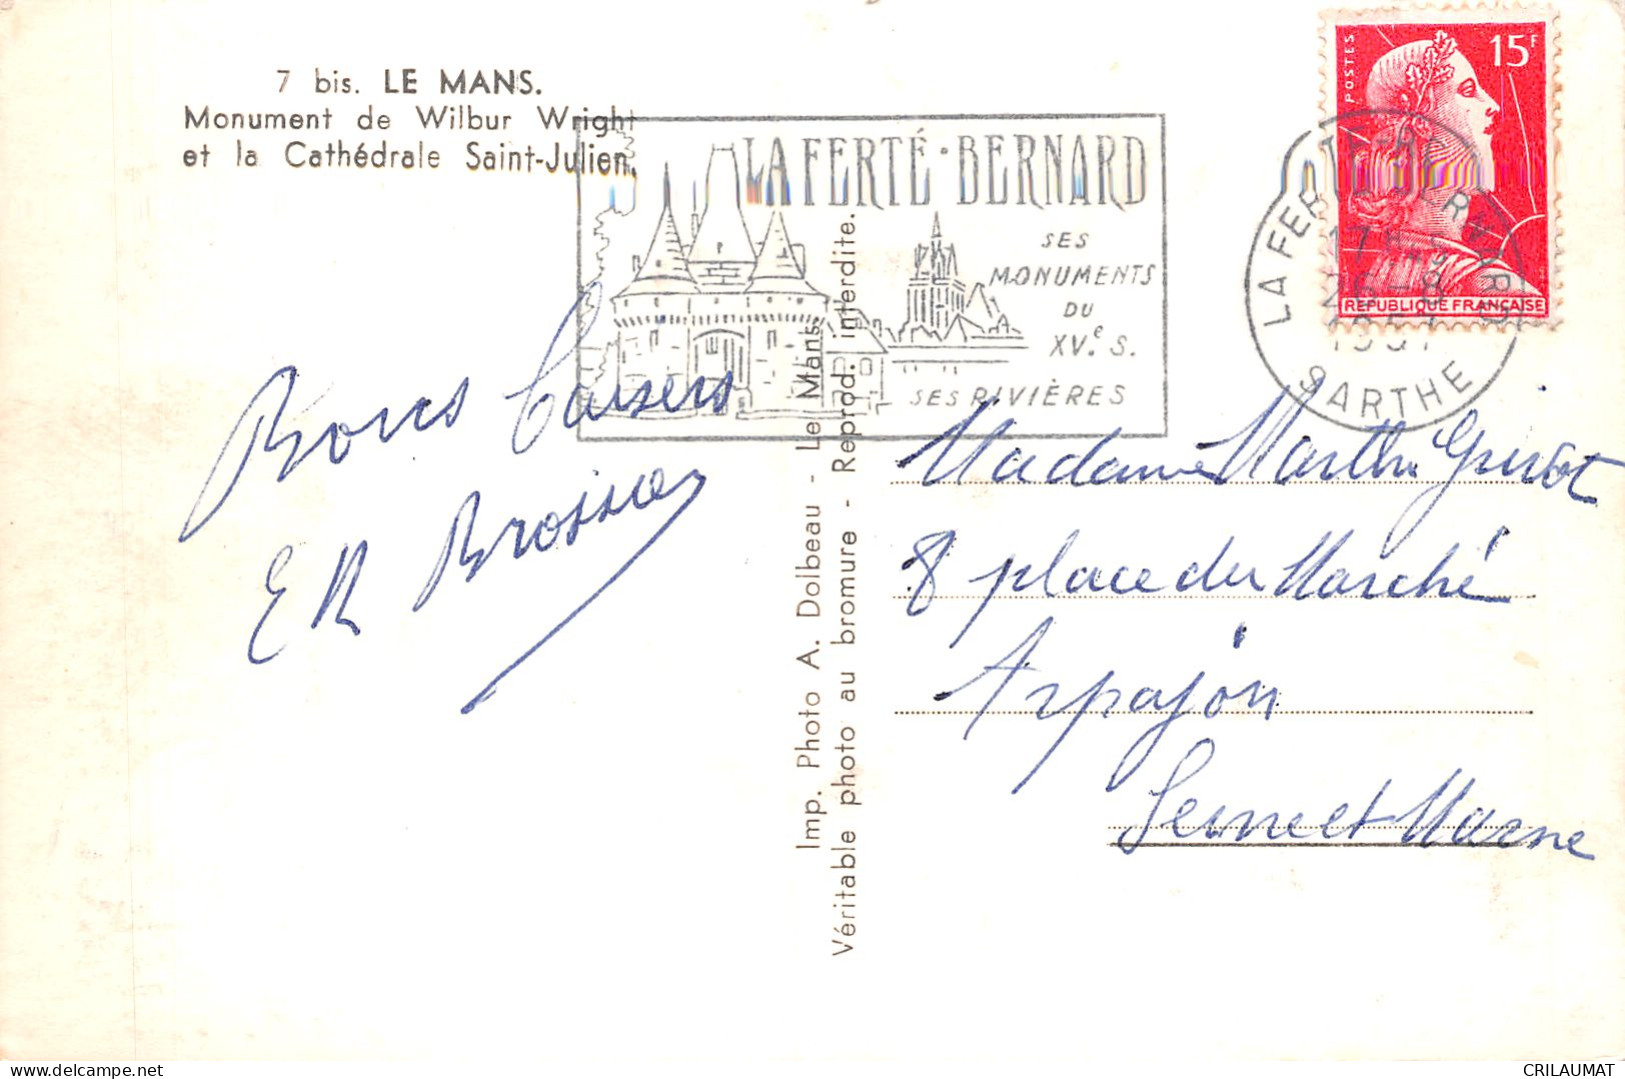 7 bis. LE MANS.
Monument de Wilbur Wright
et la Cathédrale Saint-Julien.
LA FERTÉ-BERNARD
SES
MONUMENTS
DU
XVe. S.
SES RIVIÈRES
POSTES
15F
REPUBLIQUE FRANÇAISE
LA FERTE-BERNARD
17H
26-8
1957
SARTHE
Bons baisers
E R Brossier
Imp. Photo A. Dolbeau - Le Mans.
Véritable photo au bromure - Reprod. interdite.
Madame Marthe
8 place du Marché
Arpajon
Seine et Marne
delcampe.net
CRILAUMAT